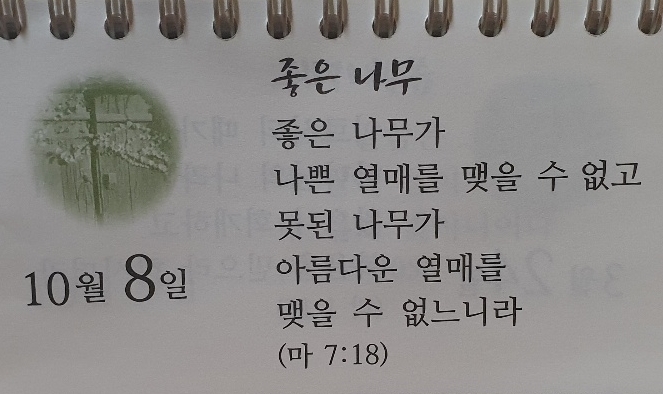 좋은 나무
좋은 나무가
나쁜 열매를 맺을 수 없고
못된 나무가
아름다운 열매를
맺을 수 없느니라
(마 7:18)
10월 8일